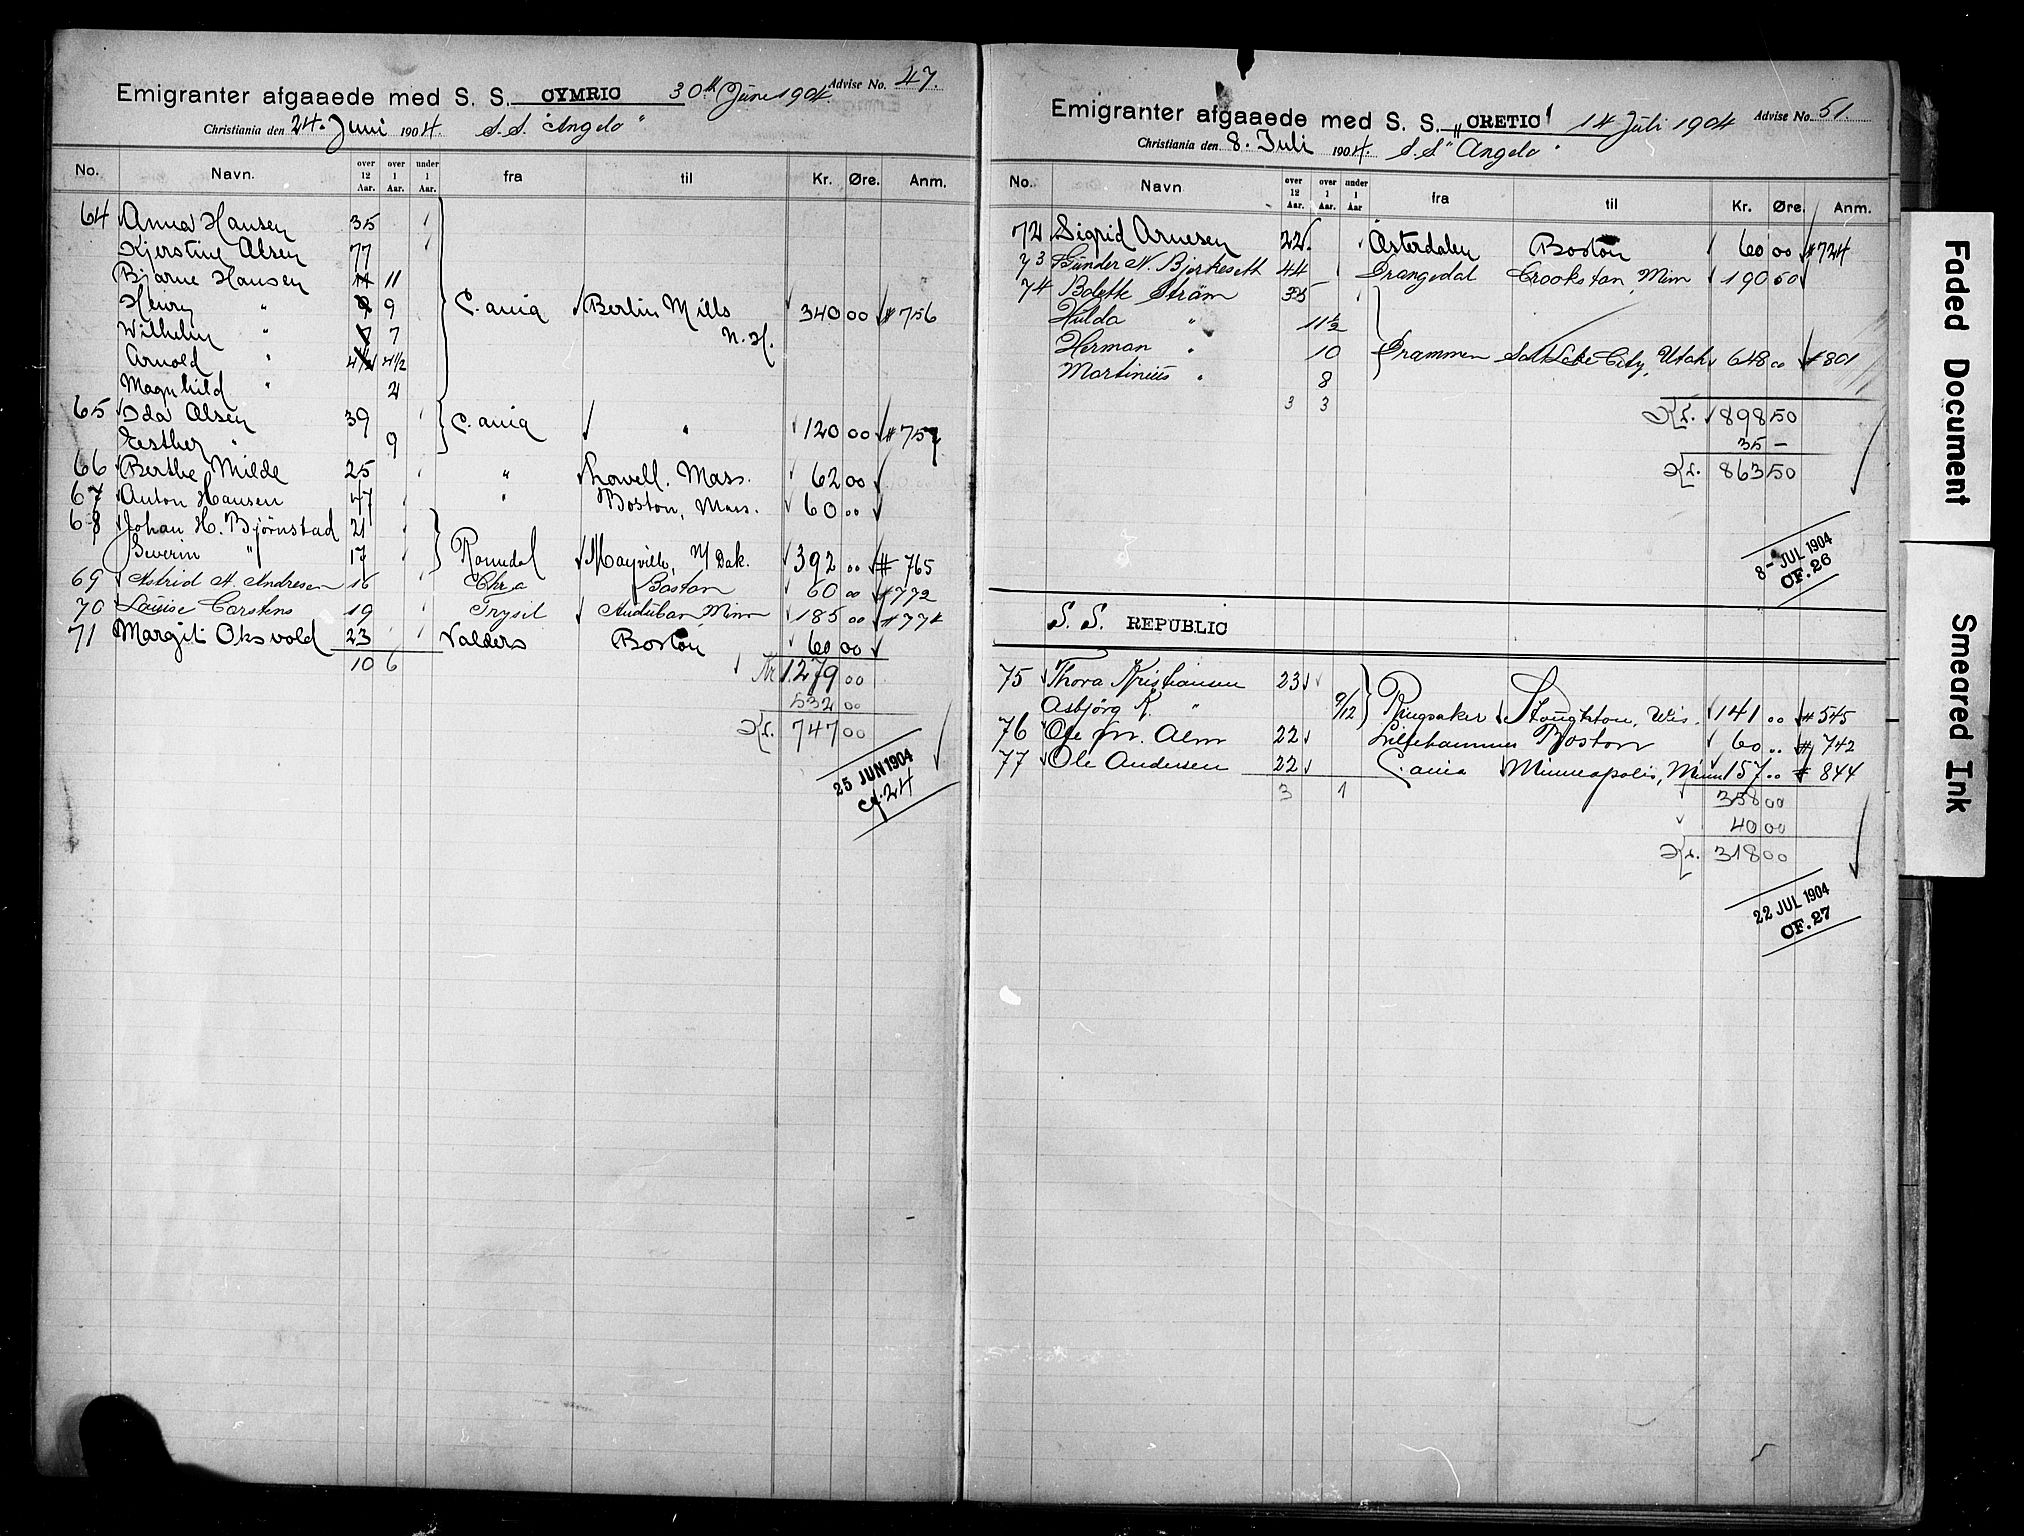 Emigranter afgaaede med S. S. CYMRIC 30th June 1904. Advise No. 47.
Christiania den 24. Juni 1904. S.S. "Angelo"
No. Navn. over 12 Aar. over 1 Aar. under 1 Aar. fra til Kr. Øre. Anm.
64 Anna Hansen 35
Kjerstine Olsen 77
Bjarne Hansen 11 11
Henry " 9 9
C.ania Berlin Mills 340 00 # 756
Wilhelm " 7 7 N.H.
Arnold " 4½ 4½
Magnhild " 2
65 Ida Olsen 39
C.ania " 120 00 # 757
Esther " 9
66 Berthe Milde 25 " Lowell, Mass. 62 00
67 Anton Hansen 47 " Boston, Mass. 60 "
68 Johan H. Bjørnstad 21
Severin " 17 Romedal Mayville, N/Dak. 392 " # 765
69 Astrid A. Andresen 16 Chra Boston 60 00 # 772
70 Louise Carstens 19 Trysil Audubon Minn 185 00 # 774
71 Margit Oksvold 23 Valders Boston 60 00
10 6 Kr 1.279 00
532 00
Kr. 747 00
25 JUN 1904
CF. 24
Emigranter afgaaede med S. S. "CRETIC" 14 Juli 1904 Advise No. 51.
Christiania den 8. Juli 1904. S.S. "Angelo"
No. Navn over 12 Aar. over 1 Aar. under 1 Aar fra til Kr. Øre. Anm.
72 Sigrid Arnesen 22. Østerdalen Boston 60 00 # 724
73 Gunder N. Bjerkeseth 44 Drangedal Crookston, Minn 190 50
74 Bolette Strøm 35
Hulda " 11½
Herman " 10 Drammen Salt Lake City, Utah 648 00 # 801
Martinius " 8
3 3 Kr. 898 50
35 -
Kr. 863 50
8 - JUL 1904
CF. 26
S. S. REPUBLIC
75 Thora Kristiansen 23
Asbjørg K. " 9/12 Ringsaker Stoughton, Wis. 141 00 # 545
76 Ole M. Alm 22 Lillehammer Boston 60 " # 742
77 Ole Andersen 22 C.ania Minneapolis, Minn 157 00 # 844
3 1 358 00
40 00
Kr. 318 00
22 JUL 1904
CF. 27
Faded Document
Smeared Ink